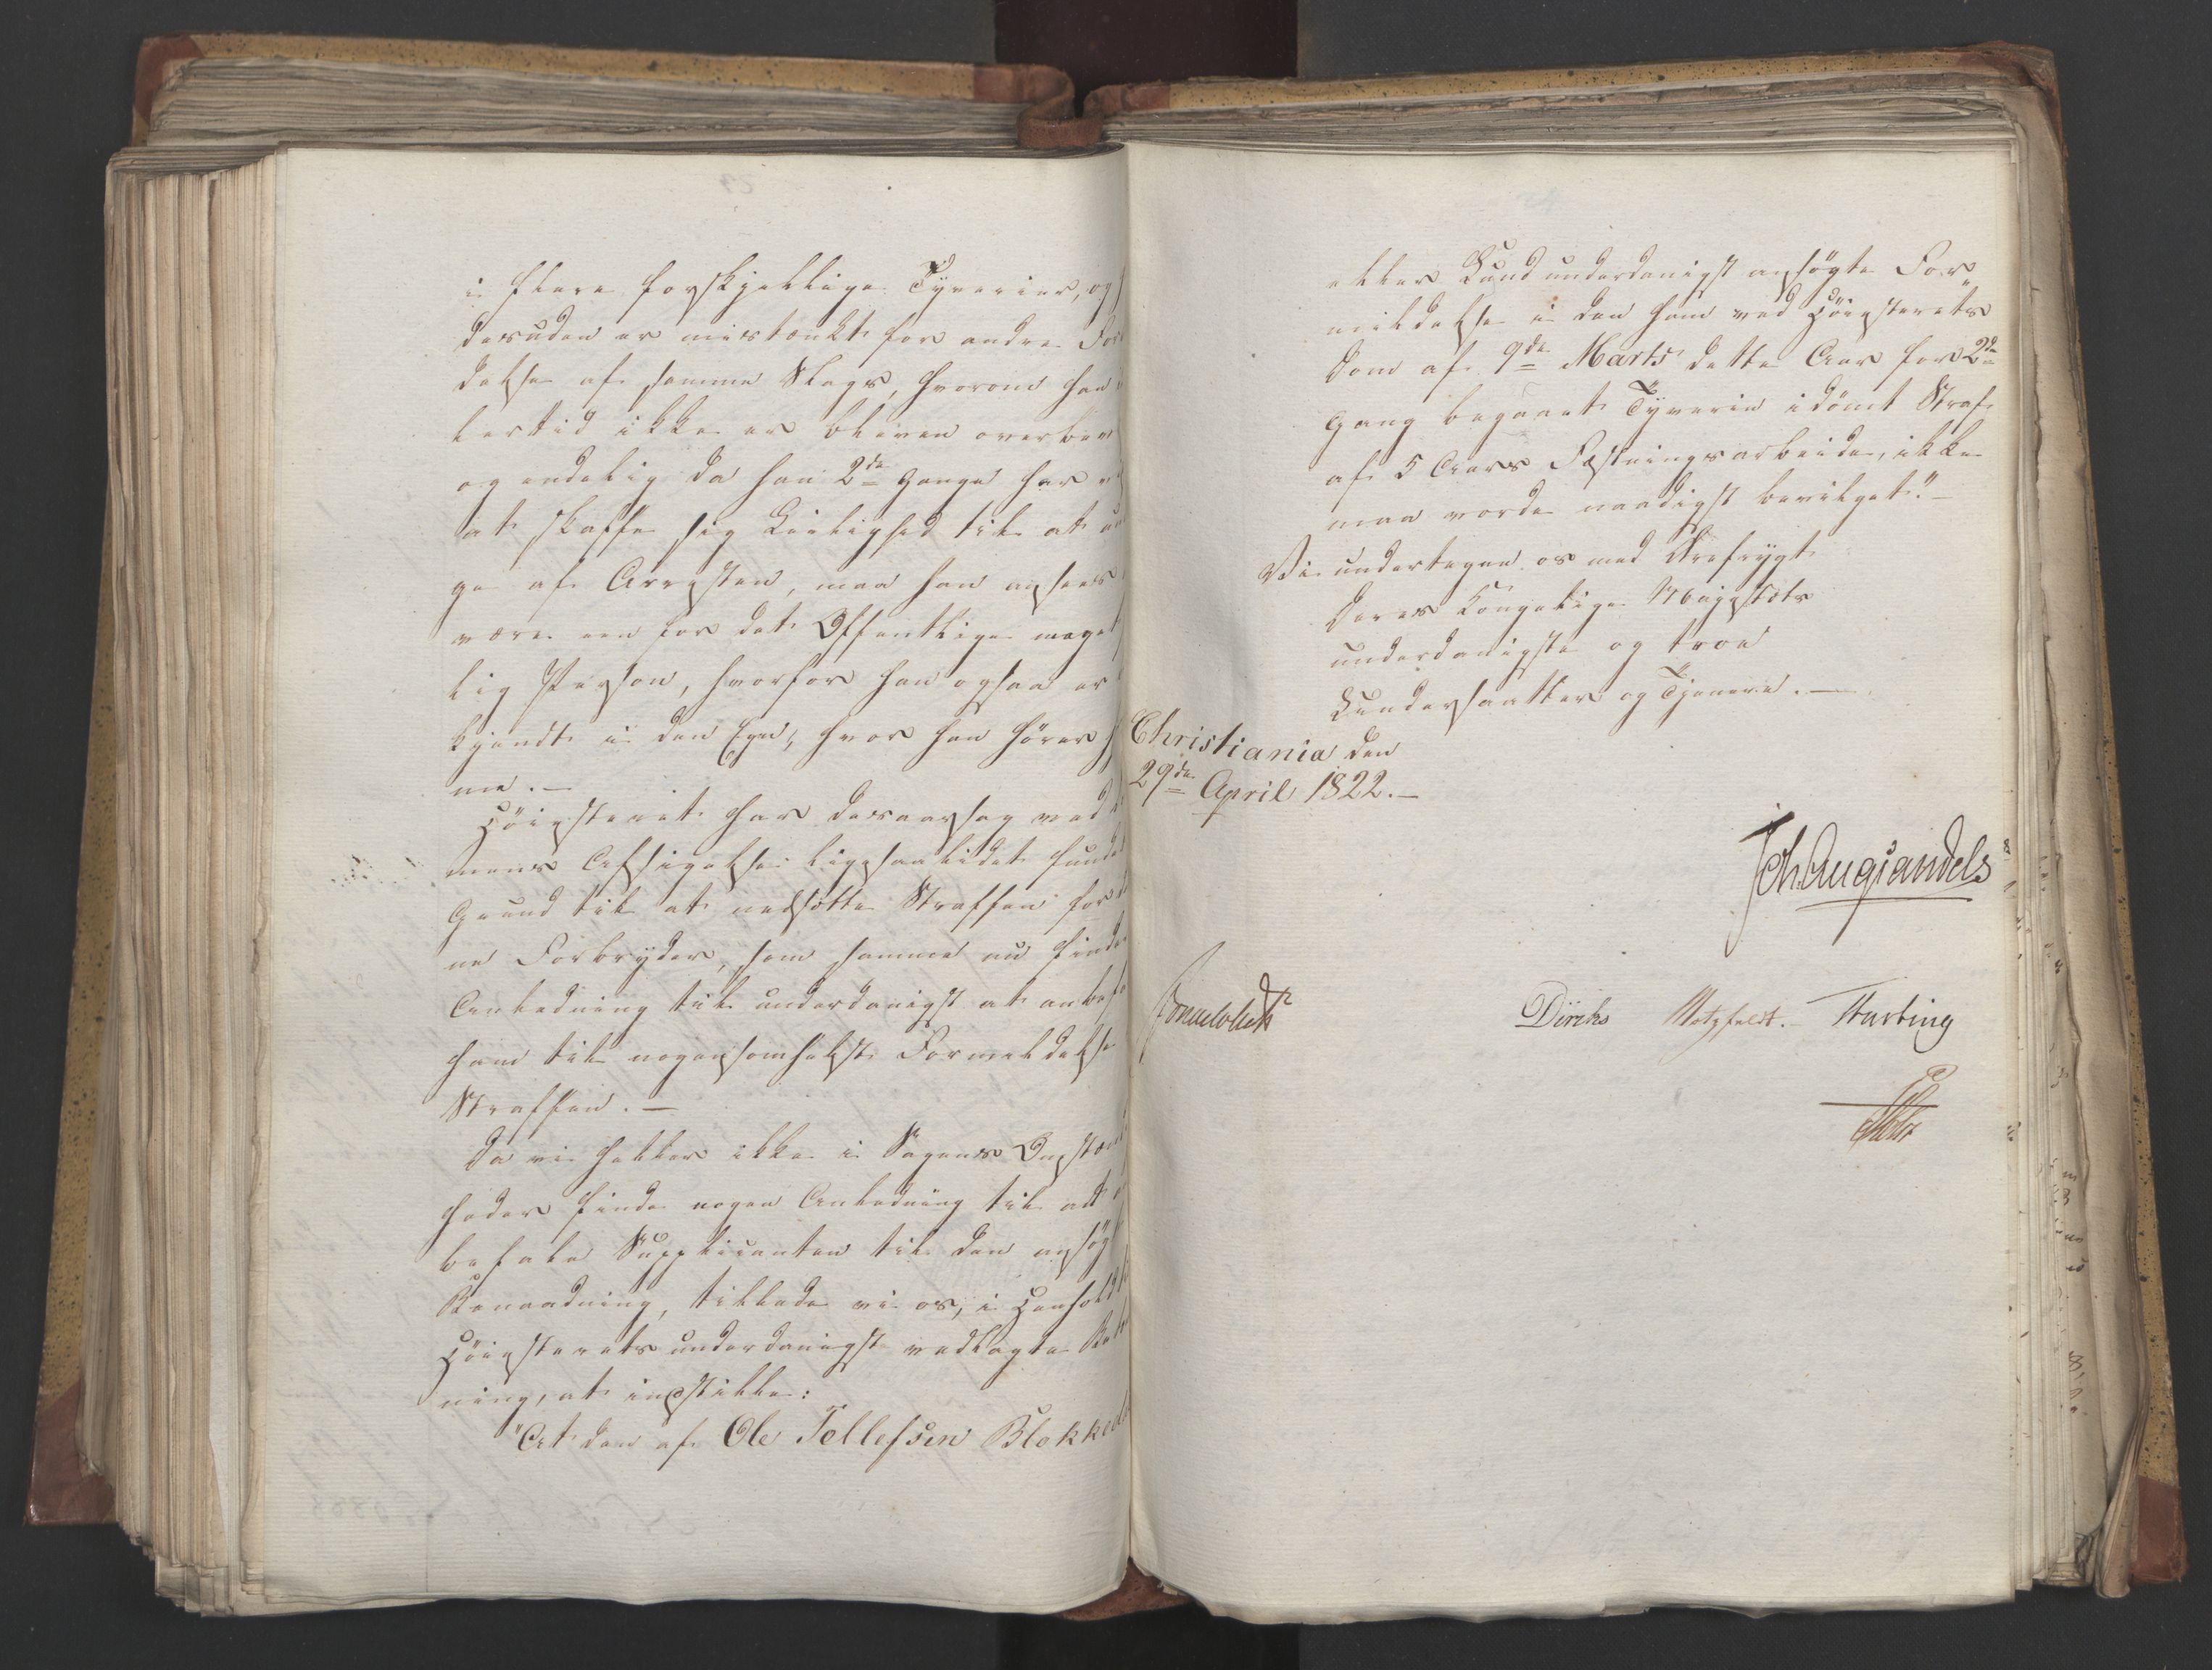 i flere forskjellige Tyverier, og
desuden er mistænkt for andre For
delser af samme Slags, hvorom han
lertid ikke er bleven overbev
og endelig da han 2de Gange har
at skaffe sig Leilighed til at und
ge af Arresten, maa han ansees
være een for det Offentlige meget
lig Person, hvorfor han ogsaa er
kjendt i den Egn, hvor han hører hj
me. —
Høiesteret har desaarsag ved
mens Afsigelse ligesaalidet fundet
Grund til at nedsætte Straffen for
ne Forbryder, som samme nu finder
Anledning til underdanigst at anbefa
ham til nogensomhelst Formildelse
Straffen. —
Da vi heller ikke i Sagens Omstæn
heder finde nogen Anledning til at
befale Supplicanten til den ansøg
Benaadning, tillade vi os, i Henhold
Høiesterets underdanigst vedlagte
ning, at indstille:
"At den af Ole Tellefsen Blokked
eller Lund underdanigst ansøgte For
mildelse i den ham ved Høiesterets
Dom af 9de Marts dette Aar for 2de
Gang begaaet Tyverie idømt Straf
af 5 Aars Fæstningsarbeide, ikke
maa vorde naadigst bevilget." —
Vi undertegne os med Ærefrygt
Deres Kongelige Majestæts
underdanigste og troe
Undersaatter og Tjenere. —
Christiania den
29de April 1822. —
Joh. Aug. Sandels
Diriks Motzfeldt. Krebting